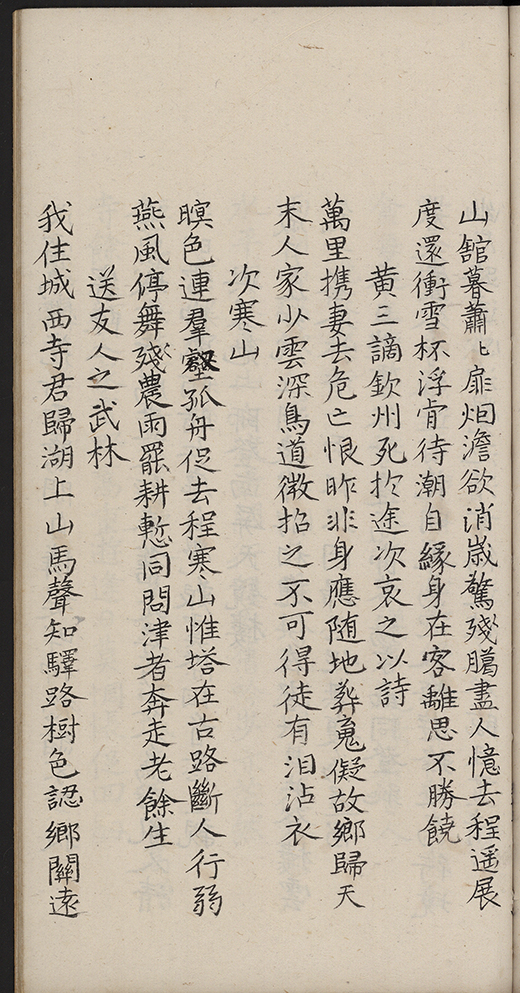 山舘暮蕭〻扉烟澹欲消嵗驚殘臈盡人憶去程遥展
度還衝雪杯浮肯待潮自緣身在客離思不勝饒
黄三謫欽州死於途次哀之以詩
萬里携妻去危亡恨昨非身應随地葬魂儗故鄉歸天
末人家少雲深鳥道微招之不可得徒有泪沾衣
次寒山
暝色連羣壑孤舟促去程寒山惟塔在古路斷人行弱
燕風停舞殘農雨罷耕慙同問津者奔走老餘生
送友人之武林
我住城西寺君歸湖上山馬聲知驛路樹色認鄉關遠